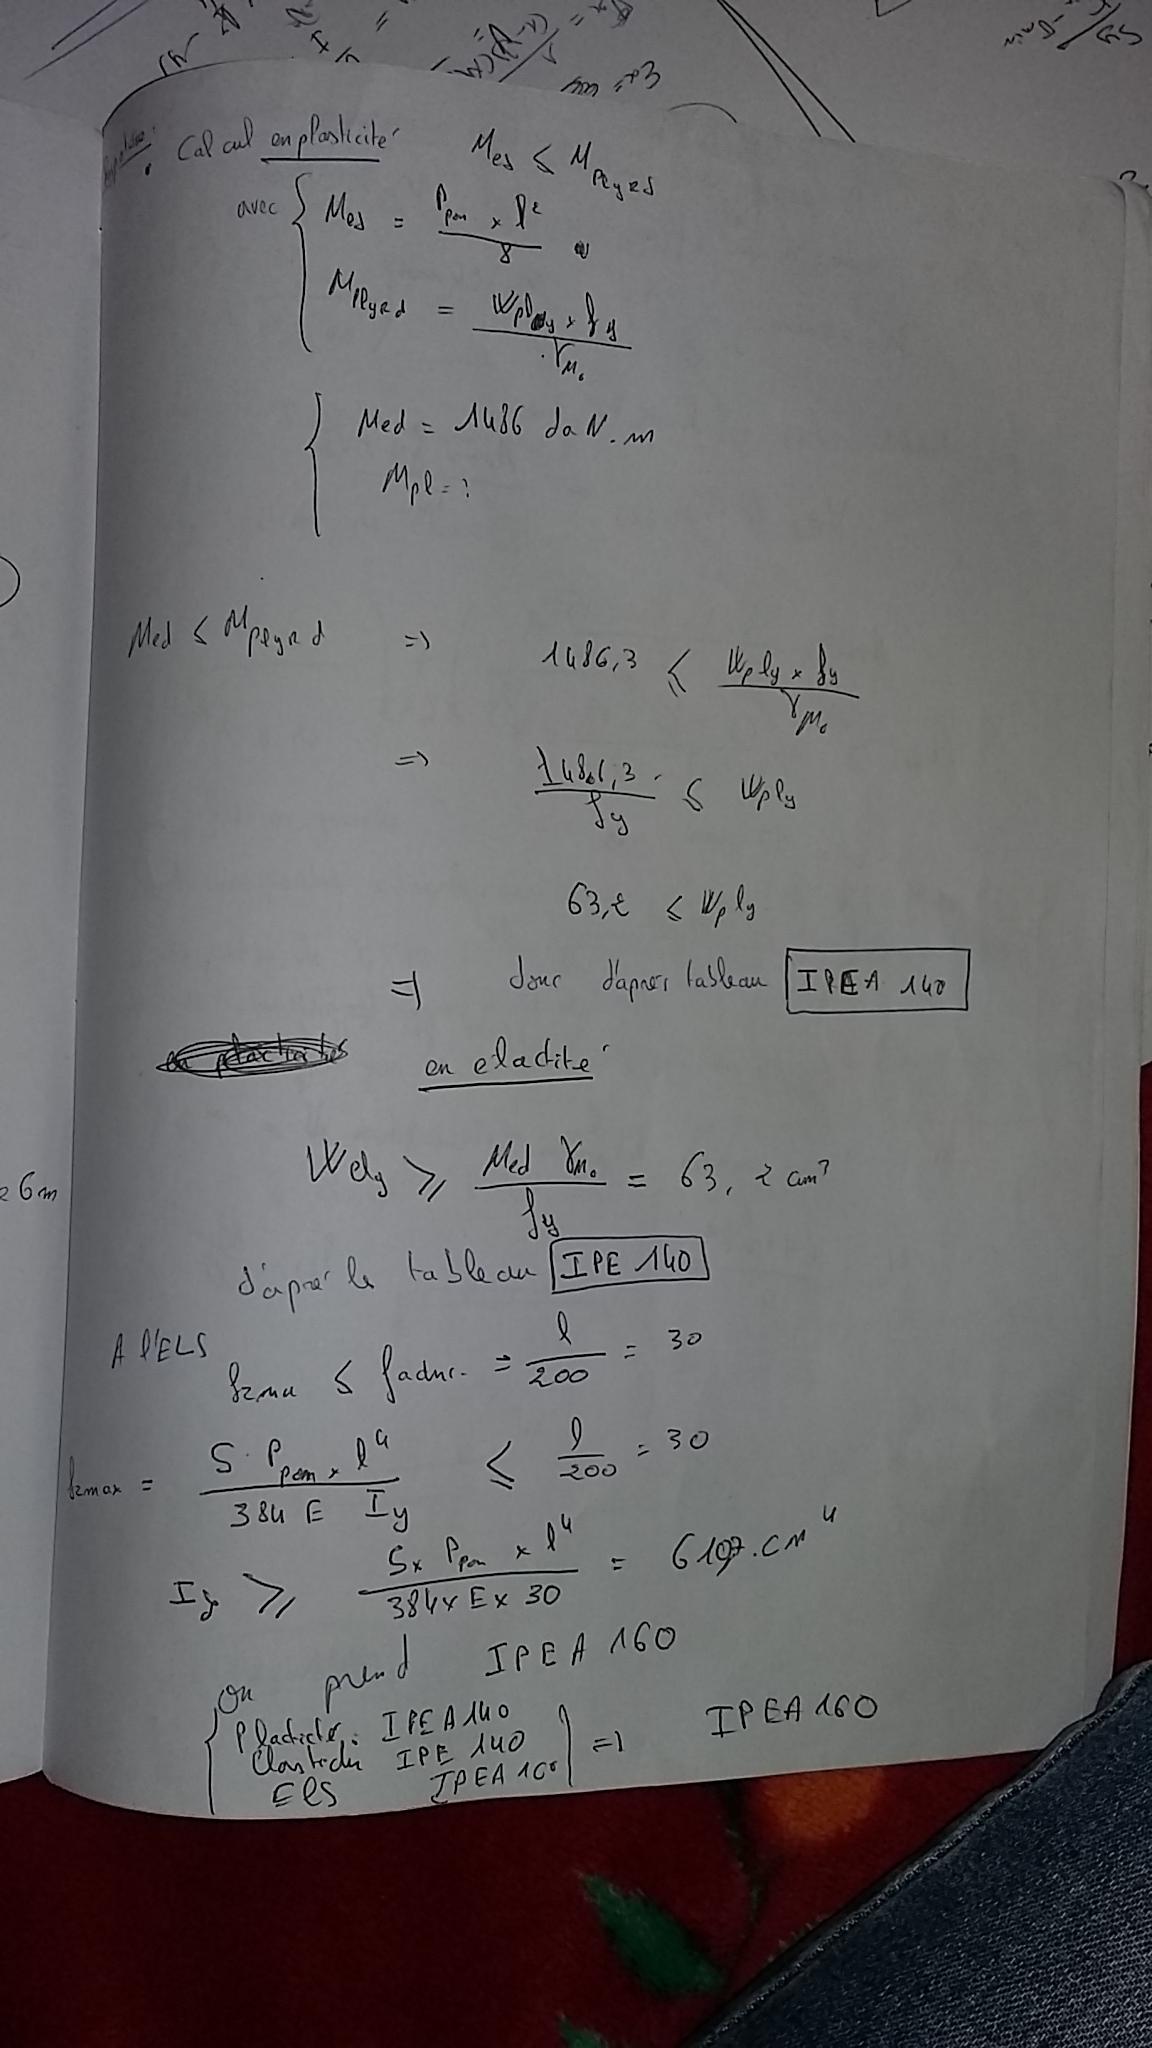 Calcul en plasticité Med ≤ Mplyrd
avec Med = Ppon x l² / 8
Mplyrd = Wply x fy / γM₀
Med = 1486 daN.m
Mpl = ?
Med ≤ Mplyrd => 1486,3 ≤ Wply x fy / γM₀
=> 1486,3 / fy ≤ Wply
63,2 ≤ Wply
=> donc d'après tableau IPEA 140
en elastité
Wely ≥ Med γM₀ / fy = 63,2 cm³
6m
d'aprè le tableau IPE 140
A l'ELS
fzmax ≤ fadm. = l / 200 = 30
fzmax = 5 . Ppon x l⁴ / 384 E Iy ≤ l / 200 = 30
Iy ≥ 5x Ppon x l⁴ / 384 x E x 30 = cm⁴
On prend IPEA 160
Plasticité : IPEA 140
IPE 140 => IPEA 160
ELS IPEA 160